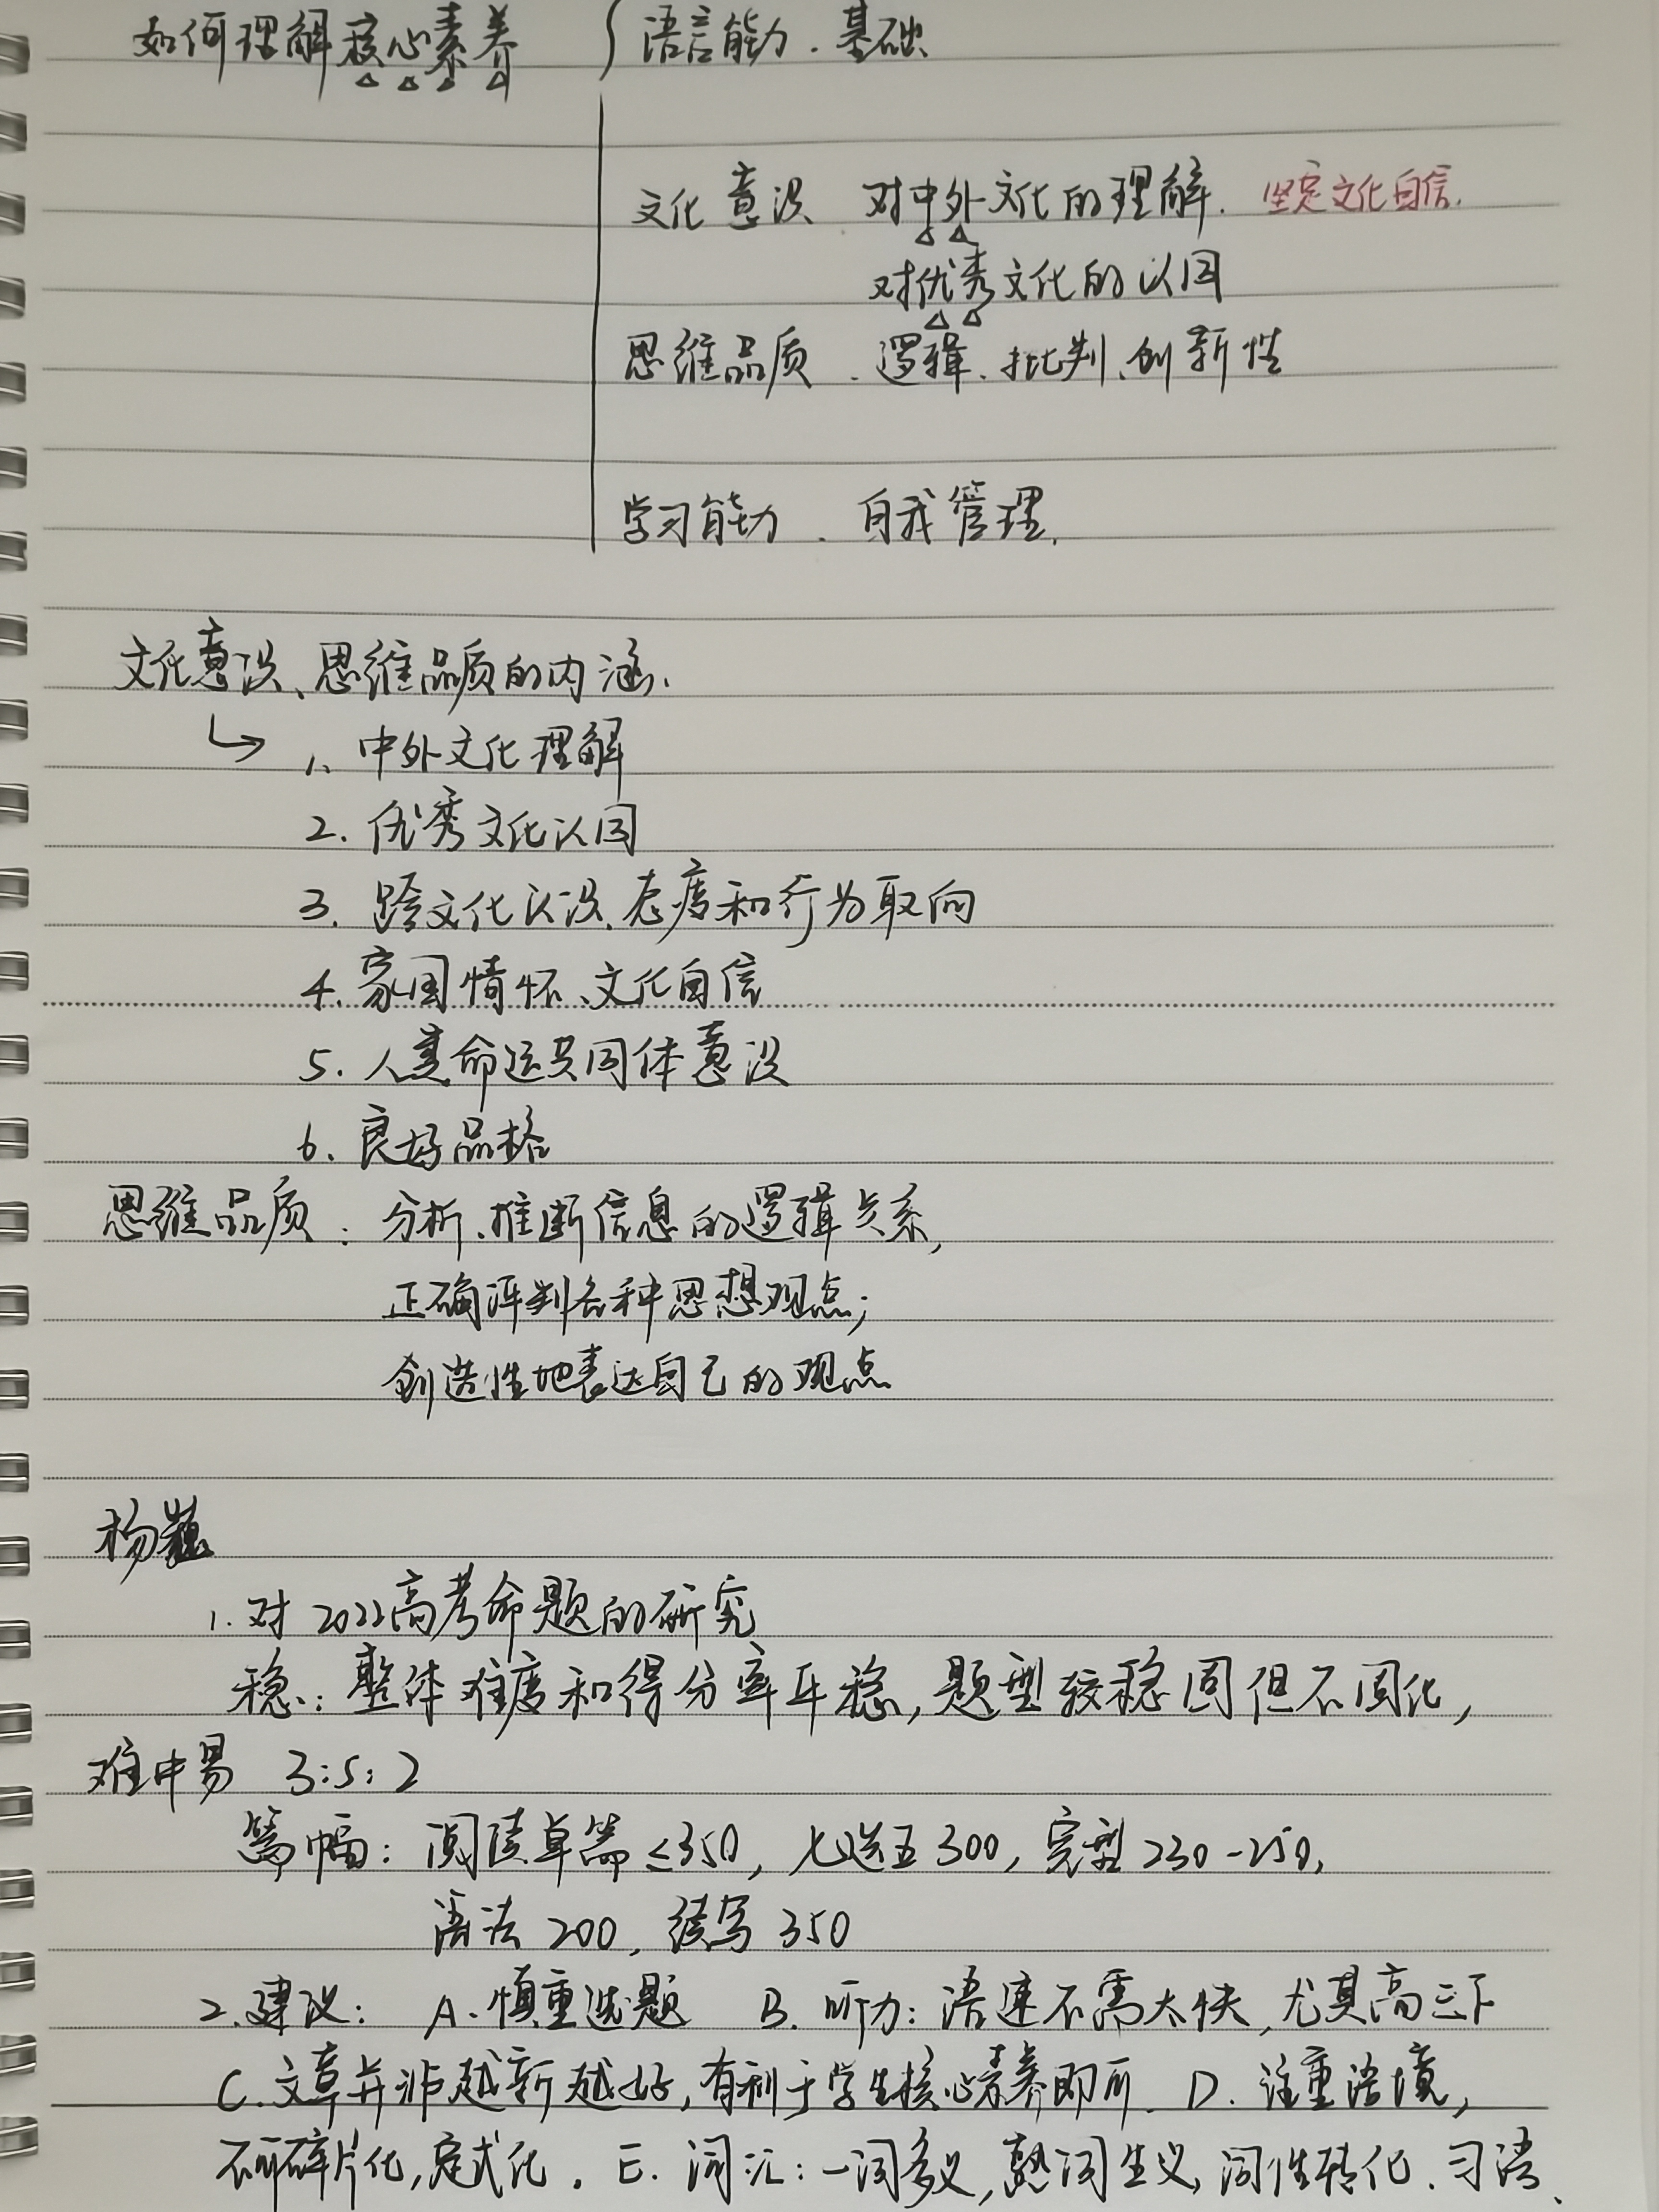 如何理解核心素养 { 语言能力. 基础
文化意识 对中外文化的理解. 坚定文化自信.
对优秀文化的认同
思维品质. 逻辑、批判、创新性
学习能力. 自我管理.
文化意识、思维品质的内涵.
↳ 1、中外文化理解
2. 优秀文化认同
3. 跨文化认识、态度和行为取向
4. 家国情怀、文化自信
5. 人类命运共同体意识
6. 良好品格
思维品质: 分析、推断信息的逻辑关系,
正确评判各种思想观点;
创造性地表达自己的观点
杨
1. 对2022高考命题的研究
稳: 整体难度和得分率平稳, 题型较稳固但不固化,
难中易 3:5:2
篇幅: 阅读单篇≤350, 七选五300, 完型230-250,
语法200, 续写350
2. 建议: A. 慎重选题 B. 听力: 语速不需太快, 尤其高三下
C. 文章并非越新越好, 有利于学生核心素养即可. D. 注重语境,
不碎片化, 定式化. E. 词汇: 一词多义, 熟词生义, 词性转化、习语、